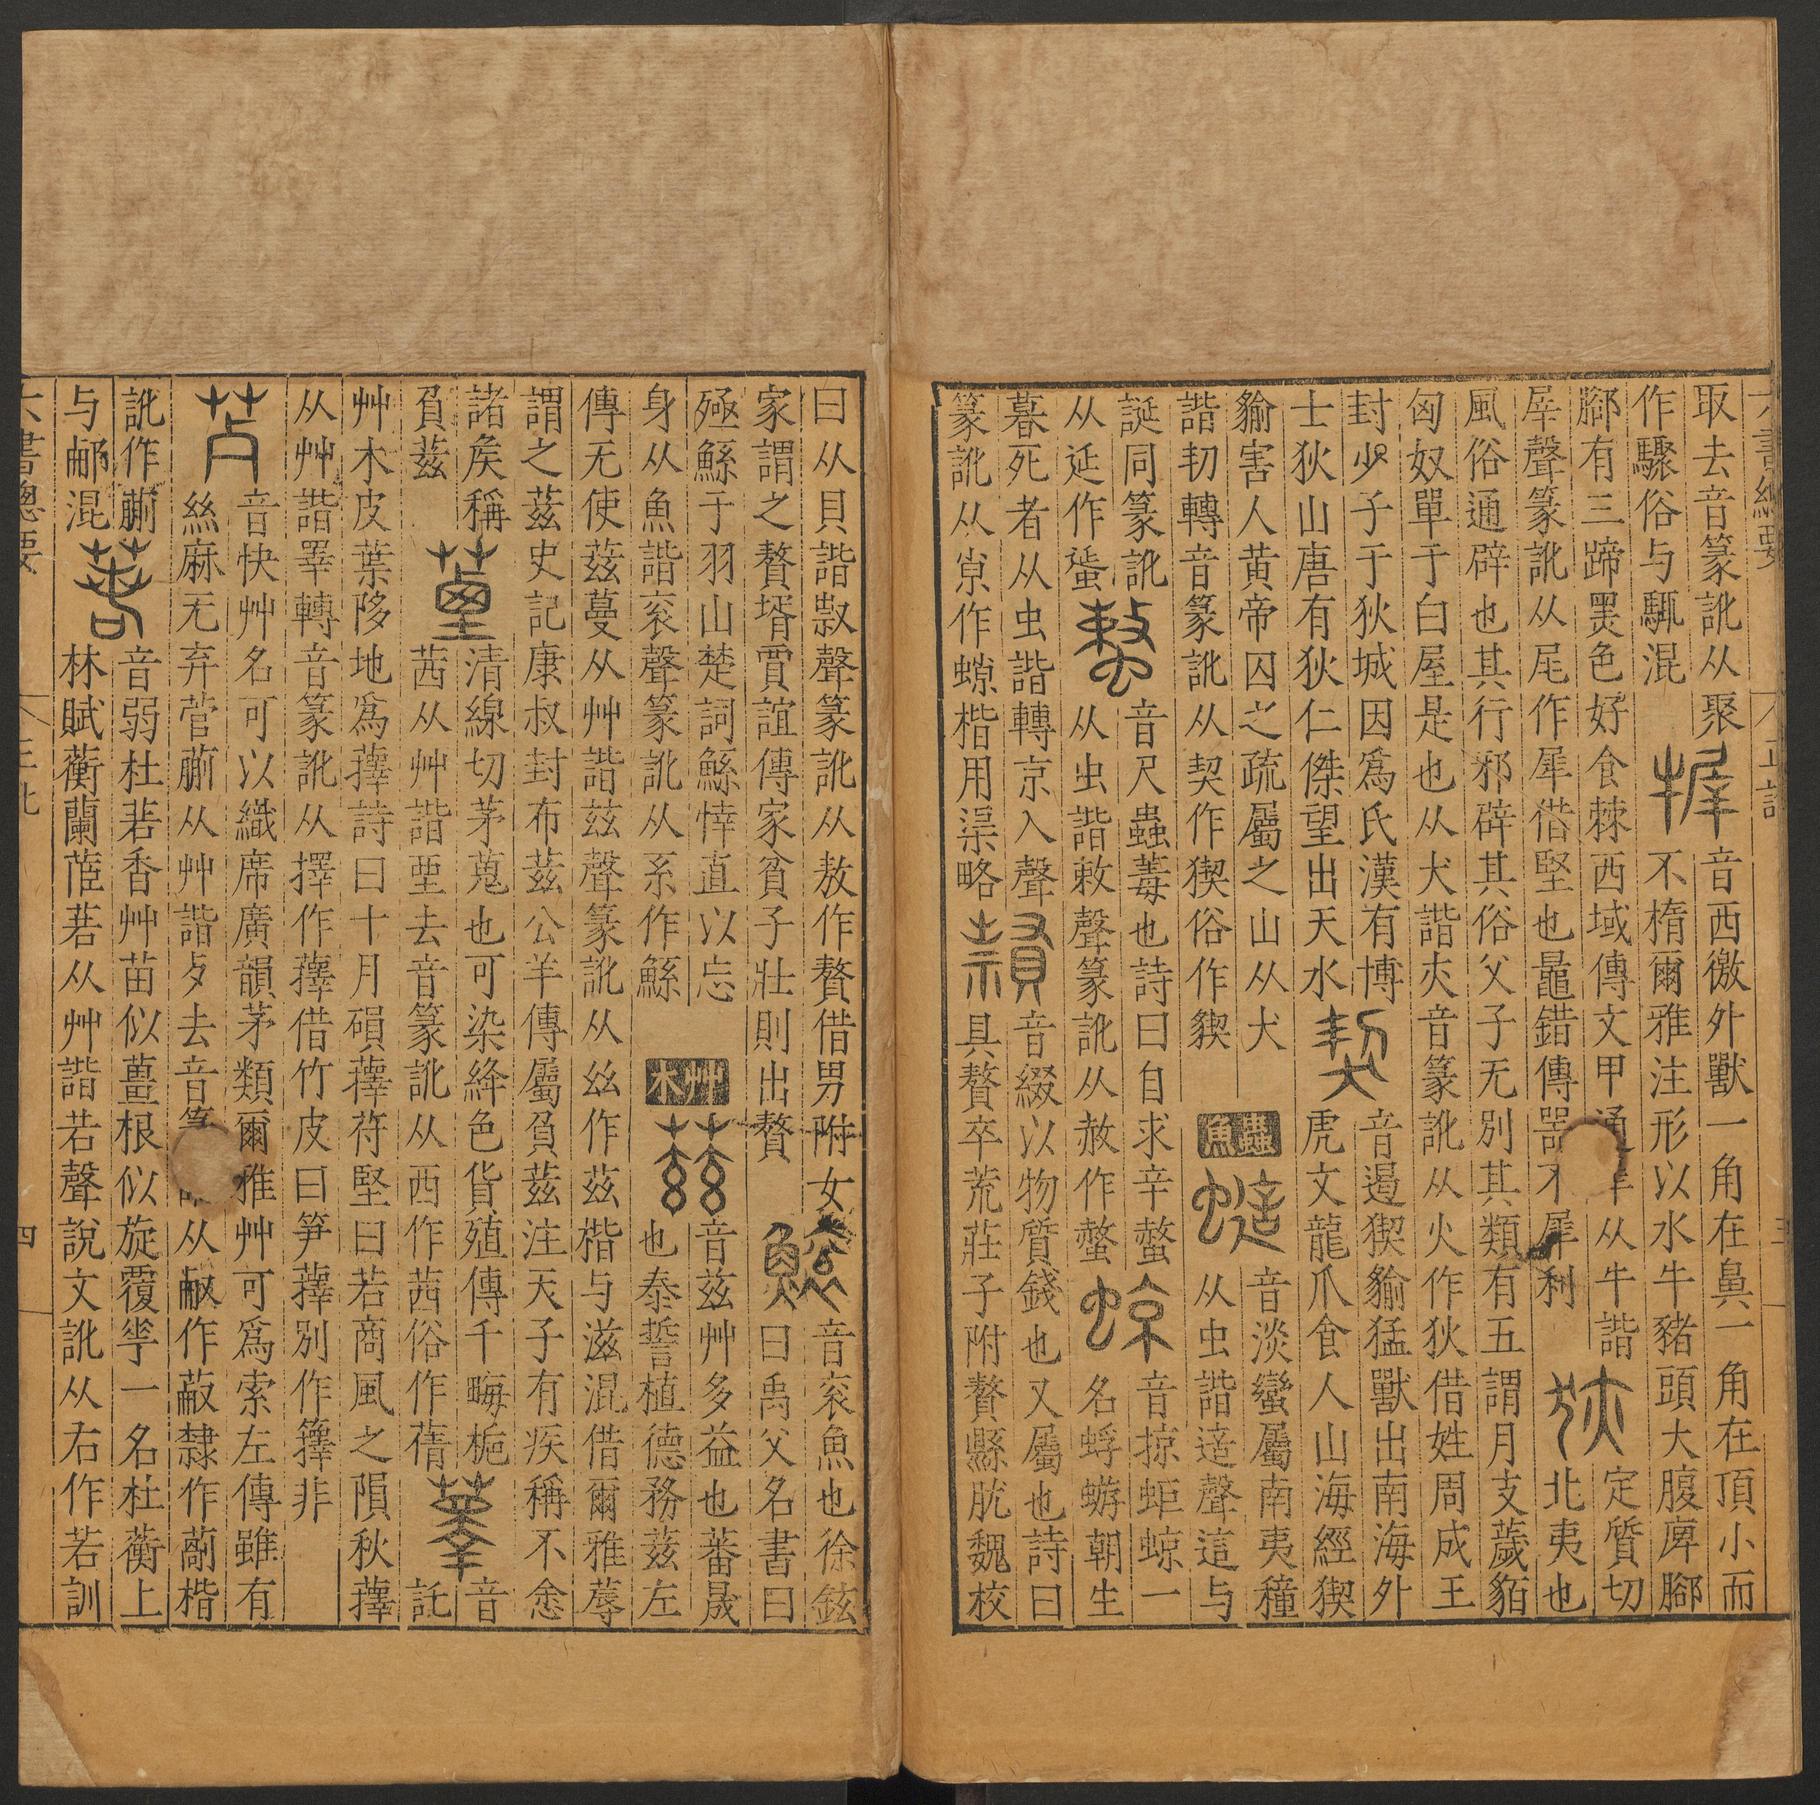 六書總要 正訛 三
取去音篆訛从聚 音西徼外獸一角在鼻一角在頂小而
作驟俗与駎混 不橢爾雅注形以水牛豬頭大腹庳腳
腳有三蹄黑色好食棘西域傳文甲通犀从牛諧 定質切
聲篆訛从尾作犀借堅也鼂錯傳器不犀利 北夷也
風俗通辟也其行邪辟其俗父子无別其類有五謂月支薉貊
匈奴單于白屋是也从犬諧夾音篆訛从火作狄借姓周成王
封少子于狄城因爲氏漢有博 音遏猰貐猛獸出南海外
士狄山唐有狄仁傑望出天水 虎文龍爪食人山海經猰
貐害人黃帝囚之疏屬之山从犬 蟲 音淡蠻屬南夷穜
諧㓞轉音篆訛从契作猰俗作 魚 从虫諧聲這与
誕同篆訛 音尺蟲毒也詩曰自求辛螫 音掠蚷蜋一
从延作蜑 从虫諧敕聲篆訛从赦作螫 名蜉蝣朝生
暮死者从虫諧轉京入聲 音綴以物質錢也又屬也詩曰
篆訛从作楷用渠略 具贅卒荒莊子附贅縣肬魏校
曰从貝諧敖聲篆訛从敖作贅借男附女 音衮魚也徐鉉
家謂之贅壻賈誼傳家貧子壯則出贅 曰禹父名書曰
殛鯀于羽山楚詞鯀婞直以忘 艸 音兹艸多益也蕃晟
身从魚諧衮聲篆訛从系作鯀 木 也泰誓植德務茲左
傳无使茲蔓从艸諧兹聲篆訛从丝作茲楷与滋混借爾雅蓐
謂之茲史記康叔封布茲公羊傳屬負茲注天子有疾稱不悆
諸矦稱 清線切茅蒐也可染絳色貨殖傳千畮梔 音
負茲 茜从艸諧垔去音篆訛从西作茜俗作蒨 託
艸木皮葉陊地爲蘀詩曰十月隕蘀苻堅曰若商風之隕秋蘀
从艸諧睪轉音篆訛从擇作蘀借竹皮曰笋蘀別作籜非
音快艸名可以織席廣韻茅類爾雅艸可爲索左傳雖有
絲麻无弃菅蒯从艸諧歺去音篆 从作蔽隸作楷
訛作蒯 音弱杜若香艸苗似薑根似旋覆華一名杜蘅上
与郙混 林賦蘅蘭茝若从艸諧若聲說文訛从右作若訓
六書總要 三 四